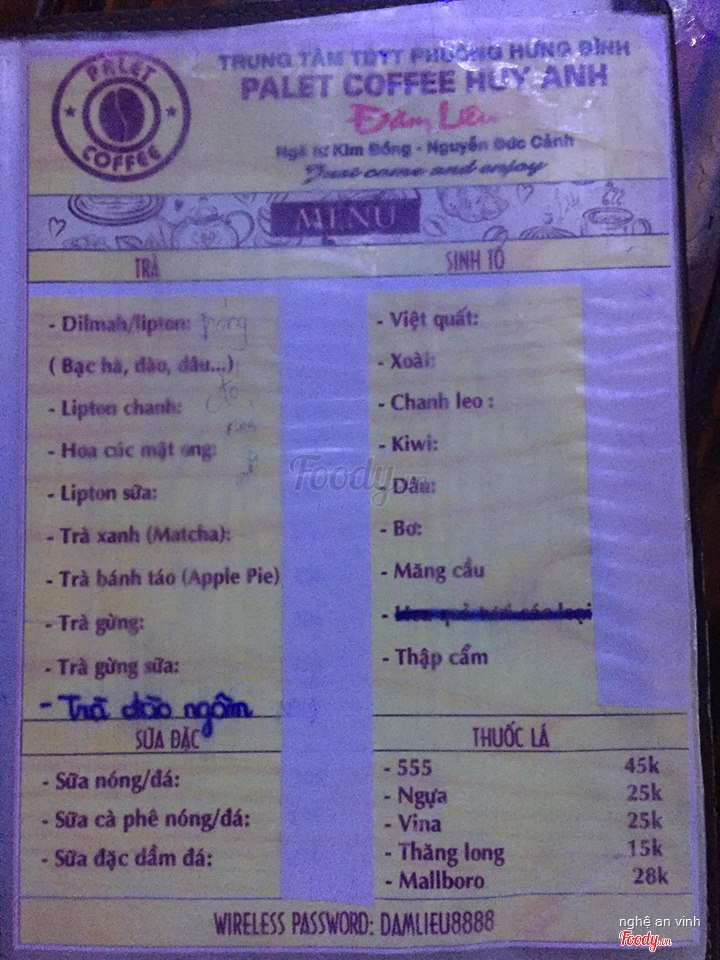 PALET
COFFEE
TRUNG TÂM TDTT PHƯỜNG HƯNG BÌNH
PALET COFFEE HUY ANH
Đàm Liêu
Ngã tư Kim Đồng - Nguyễn Đức Cảnh
Just come and enjoy
MENU
TRÀ
- Dilmah/lipton:
( Bạc hà, đào, dâu...)
- Lipton chanh:
- Hoa cúc mật ong:
- Lipton sữa:
- Trà xanh (Matcha):
- Trà bánh táo (Apple Pie)
- Trà gừng:
- Trà gừng sữa:
- Trà đào ngâm
SINH TỐ
- Việt quất:
- Xoài:
- Chanh leo :
- Kiwi:
- Dâu:
- Bơ:
- Măng cầu
- Hoa quả tươi các loại
- Thập cẩm
SỮA ĐẶC
- Sữa nóng/đá:
- Sữa cà phê nóng/đá:
- Sữa đặc dầm đá:
THUỐC LÁ
- 555 45k
- Ngựa 25k
- Vina 25k
- Thăng long 15k
- Mallboro 28k
WIRELESS PASSWORD: DAMLIEU8888
Foody.vn
nghệ an vinh
Foody.vn